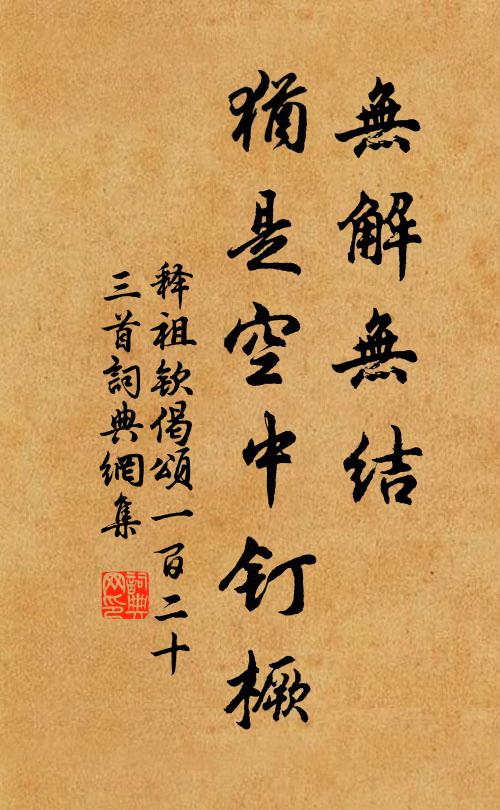 無解無结
猶是空中钉橛
释祖钦偈頌一百二十
三首詞典網集
詞典网印